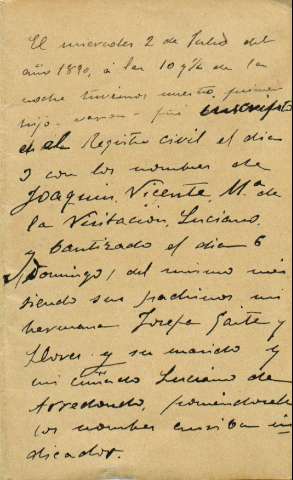 El miercoles 2 de Julio del
año 1890, á las 10 y ½ de la
noche tuvimos nuestro primer
hijo - varon - fué inscripto
en el Registro civil el dia
3 con los nombres de
Joaquin, Vicente, Mª de
la Visitacion, Luciano,
y bautizado el dia 6
(Domingo) del mismo mes
siendo sus padrinos mi
hermana Josefa Gaite y
Llovet y su marido y
mi cuñado Luciano de
Arredondo, poniendosele
los nombres arriba in
dicados.